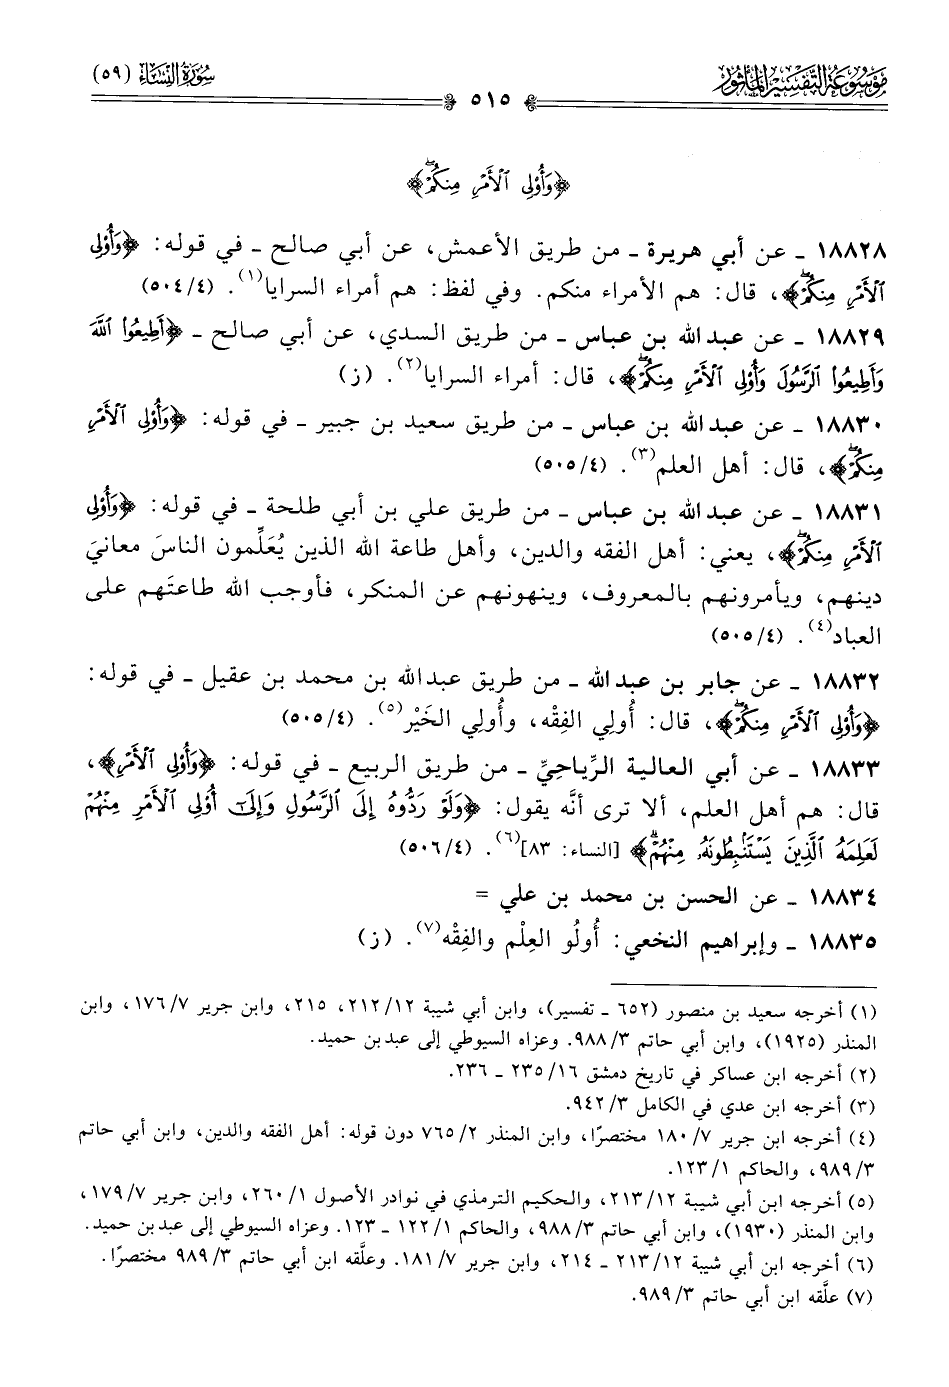 مَوْسُوعَة التَّفْسِيْر المَأْثُور
سُورَةُ النِّسَاء (٥٩)
٥١٥
﴿وَأُوْلِى ٱلْأَمْرِ مِنكُمْۖ﴾
١٨٨٢٨ ـ عن أبي هريرة ـ من طريق الأعمش، عن أبي صالح ـ في قوله: ﴿وَأُوْلِى
ٱلْأَمْرِ مِنكُمْۖ﴾، قال: هم الأمراء منكم. وفي لفظ: هم أمراء السرايا(١). (٥٠٤/٤)
١٨٨٢٩ ـ عن عبدالله بن عباس ـ من طريق السدي، عن أبي صالح ـ ﴿أَطِيعُواْ ٱللَّهَ
وَأَطِيعُواْ ٱلرَّسُولَ وَأُوْلِى ٱلْأَمْرِ مِنكُمْۖ﴾، قال: أمراء السرايا(٢). (ز)
١٨٨٣٠ ـ عن عبدالله بن عباس ـ من طريق سعيد بن جبير ـ في قوله: ﴿وَأُوْلِى ٱلْأَمْرِ
مِنكُمْۖ﴾، قال: أهل العلم(٣). (٥٠٥/٤)
١٨٨٣١ ـ عن عبدالله بن عباس ـ من طريق علي بن أبي طلحة ـ في قوله: ﴿وَأُوْلِى
ٱلْأَمْرِ مِنكُمْۖ﴾، يعني: أهل الفقه والدين، وأهل طاعة الله الذين يُعَلِّمون الناسَ معانيَ
دينهم، ويأمرونهم بالمعروف، وينهونهم عن المنكر، فأوجب الله طاعتَهم على
العباد(٤). (٥٠٥/٤)
١٨٨٣٢ ـ عن جابر بن عبدالله ـ من طريق عبدالله بن محمد بن عقيل ـ في قوله:
﴿وَأُوْلِى ٱلْأَمْرِ مِنكُمْۖ﴾، قال: أُولِي الفِقْه، وأُولِي الخَيْر(٥). (٥٠٥/٤)
١٨٨٣٣ ـ عن أبي العالية الرِّياحِيِّ ـ من طريق الربيع ـ في قوله: ﴿وَأُوْلِى ٱلْأَمْرِ﴾،
قال: هم أهل العلم، ألا ترى أنَّه يقول: ﴿وَلَوْ رَدُّوهُ إِلَى ٱلرَّسُولِ وَإِلَىٰٓ أُوْلِى ٱلْأَمْرِ مِنْهُمْ
لَعَلِمَهُ ٱلَّذِينَ يَسْتَنۢبِطُونَهُۥ مِنْهُمْۗ﴾ [النساء: ٨٣](٦). (٥٠٦/٤)
١٨٨٣٤ ـ عن الحسن بن محمد بن علي =
١٨٨٣٥ ـ وإبراهيم النخعي: أُولُو العِلْم والفِقْه(٧). (ز)
(١) أخرجه سعيد بن منصور (٦٥٢ ـ تفسير)، وابن أبي شيبة ٢١٢/١٢، ٢١٥، وابن جرير ١٧٦/٧، وابن
المنذر (١٩٢٥)، وابن أبي حاتم ٩٨٨/٣. وعزاه السيوطي إلى عبد بن حميد.
(٢) أخرجه ابن عساكر في تاريخ دمشق ٢٣٥/١٦ ـ ٢٣٦.
(٣) أخرجه ابن عدي في الكامل ٩٤٢/٣.
(٤) أخرجه ابن جرير ١٨٠/٧ مختصرًا، وابن المنذر ٧٦٥/٢ دون قوله: أهل الفقه والدين، وابن أبي حاتم
٩٨٩/٣، والحاكم ١٢٣/١.
(٥) أخرجه ابن أبي شيبة ٢١٣/١٢، والحكيم الترمذي في نوادر الأصول ٢٦٠/١، وابن جرير ١٧٩/٧،
وابن المنذر (١٩٣٠)، وابن أبي حاتم ٩٨٨/٣، والحاكم ١٢٢/١ ـ ١٢٣. وعزاه السيوطي إلى عبد بن حميد.
(٦) أخرجه ابن أبي شيبة ٢١٣/١٢ ـ ٢١٤، وابن جرير ١٨١/٧. وعلَّقه ابن أبي حاتم ٩٨٩/٣ مختصرًا.
(٧) علَّقه ابن أبي حاتم ٩٨٩/٣.